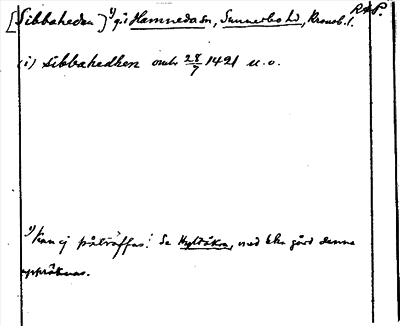 RAP.
[Sibbaheden]¹⁾ gd Hamneda sn, Sunnerbo hd, Kronob. l.
(i) sibbahedhen 28/7 1421 u. o.
¹⁾ Kan ej påträffas. Se Hyltåkra, med hken gård denna
uppräknas.